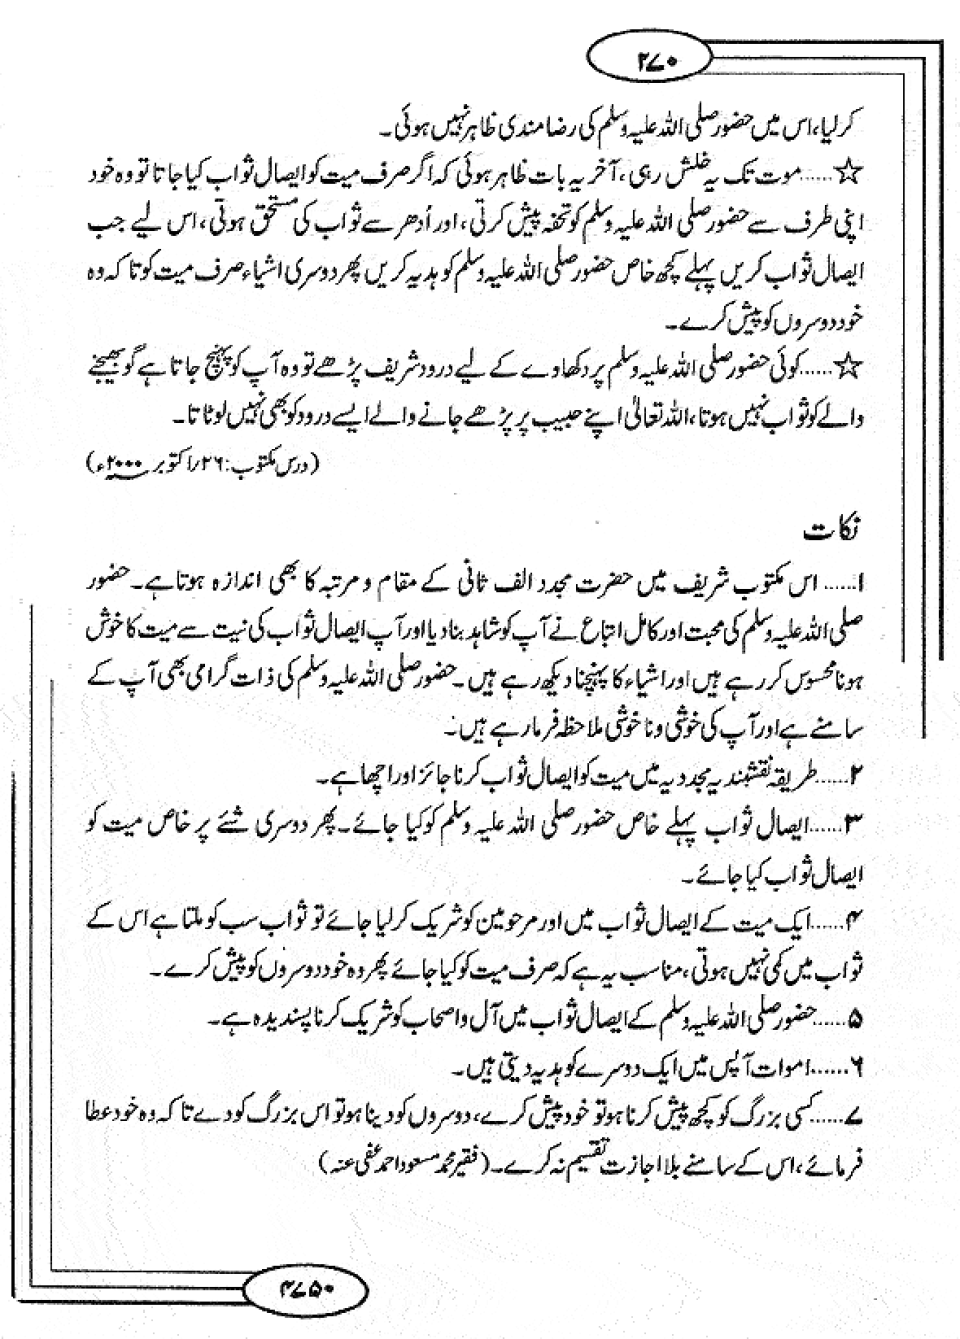 ۲۷۰
کرلیا، اس میں حضور صلی اللہ علیہ وسلم کی رضا مندی ظاہر نہیں ہوئی۔
☆......موت تک یہ خلش رہی، آخر یہ بات ظاہر ہوئی کہ اگر صرف میت کو ایصال ثواب کیا جاتا تو وہ خود
اپنی طرف سے حضور صلی اللہ علیہ وسلم کو تحفہ پیش کرتی، اور اُدھر سے ثواب کی مستحق ہوتی، اس لیے جب
ایصال ثواب کریں پہلے کچھ خاص حضور صلی اللہ علیہ وسلم کو ہدیہ کریں پھر دوسری اشیاء صرف میت کو تا کہ وہ
خود دوسروں کو پیش کرے۔
☆......کوئی حضور صلی اللہ علیہ وسلم پر دکھاوے کے لیے درود شریف پڑھے تو وہ آپ کو پہنچ جاتا ہے گو بھیجنے
والے کو ثواب نہیں ہوتا، اللہ تعالیٰ اپنے حبیب پر پڑھے جانے والے ایسے درود کو بھی نہیں لوٹاتا۔
(درس مکتوب: ۲۶/اکتوبر ۲۰۰۰ء)
نکات
۱...... اس مکتوب شریف میں حضرت مجدد الف ثانی کے مقام و مرتبہ کا بھی اندازہ ہوتا ہے۔ حضور
صلی اللہ علیہ وسلم کی محبت اور کامل اتباع نے آپ کو شاہد بنا دیا اور آپ ایصال ثواب کی نیت سے میت کا خوش
ہونا محسوس کر رہے ہیں اور اشیاء کا پہنچنا دیکھ رہے ہیں۔ حضور صلی اللہ علیہ وسلم کی ذات گرامی بھی آپ کے
سامنے ہے اور آپ کی خوشی و ناخوشی ملاحظہ فرما رہے ہیں۔
۲......طریقہ نقشبندیہ مجددیہ میں میت کو ایصال ثواب کرنا جائز اور اچھا ہے۔
۳......ایصال ثواب پہلے خاص حضور صلی اللہ علیہ وسلم کو کیا جائے۔ پھر دوسری شئے پر خاص میت کو
ایصال ثواب کیا جائے۔
۴......ایک میت کے ایصال ثواب میں اور مرحومین کو شریک کرلیا جائے تو ثواب سب کو ملتا ہے اس کے
ثواب میں کمی نہیں ہوتی، مناسب یہ ہے کہ صرف میت کو کیا جائے پھر وہ خود دوسروں کو پیش کرے۔
۵......حضور صلی اللہ علیہ وسلم کے ایصال ثواب میں آل واصحاب کو شریک کرنا پسندیدہ ہے۔
۶......اموات آپس میں ایک دوسرے کو ہدیہ دیتی ہیں۔
۷......کسی بزرگ کو کچھ پیش کرنا ہو تو خود پیش کرے، دوسروں کو دینا ہو تو اس بزرگ کو دے تا کہ وہ خود عطا
فرمائے، اس کے سامنے بلا اجازت تقسیم نہ کرے۔ (فقیر محمد مسعود احمد عفی عنہ)
۴۷۵۰